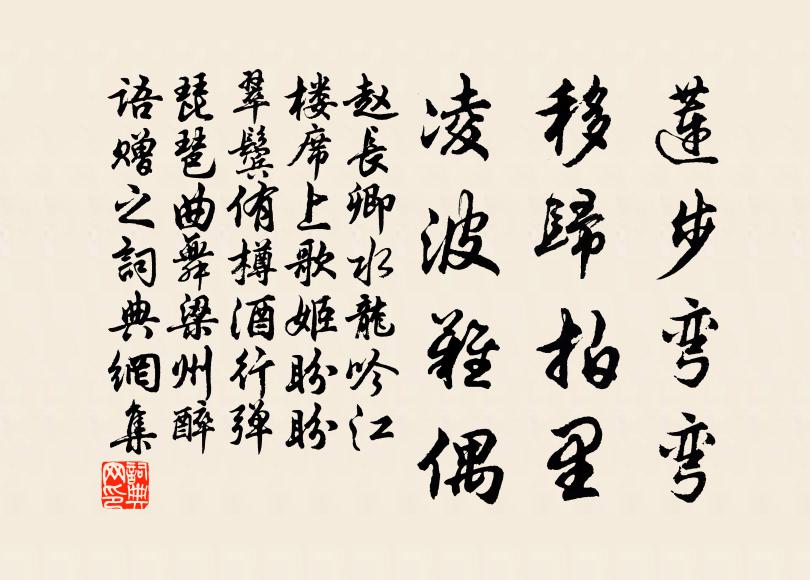 莲步弯弯
移歸拍里
凌波難偶
赵長卿水龍吟江
楼席上歌姬盼盼
翠鬓侑樽酒行弹
琵琶曲舞梁州醉
語赠之詞典網集
詞典网印